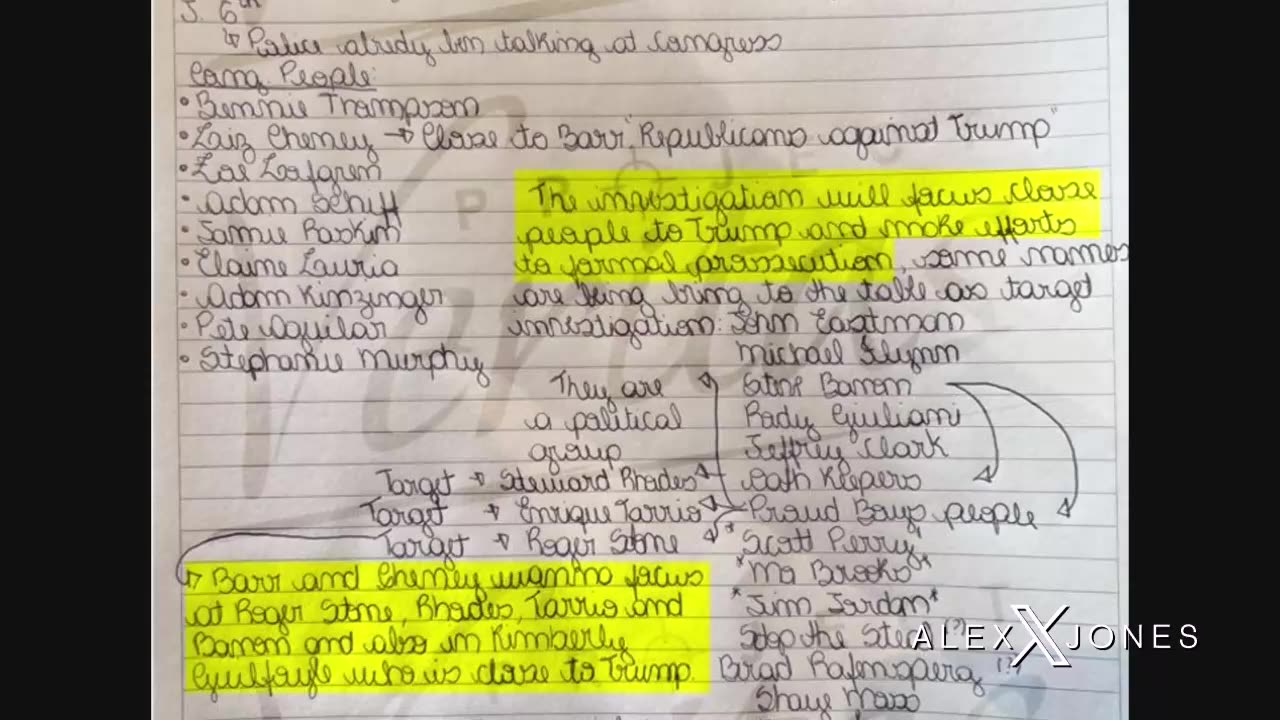 J. 6th
↳ Police alredy bin talking at Congress
Cong. People:
• Bennie Trompson
• Laiz Cheney → Close to Barr "Republicans against Trump"
• Zoe Lofgren
• Adam Schiff
• Jamie Raskin
• Elaine Lauria
• Adam Kinzinger
• Pete Aguilar
• Stephanie Murphy
The investigation will focus close
people to Trump and make efforts
to formal prossecution, some names
are being bring to the table as target
investigation: John Eastman
Michael Flynn
They are
a political
group
Stive Bannon
Rudy Giuliani
Jeffrey Clark
Target → Steward Rhodes
Oath Keepers
Target → Enrique Tarrio
Proud Boys people
Target → Roger Stone
*Scott Perry*
*Mo Brooks*
*Jim Jordan*
Stop the Steal (?)
Brad Rafnsperg (?)
Shaye Moss
↳ Barr and Cheney wanna focus
at Roger Stone, Rhodes, Tarrio and
Bannon and also in Kimberly
Guilfoyle who is close to Trump.
PROJECT
Veritas
ALEX X JONES